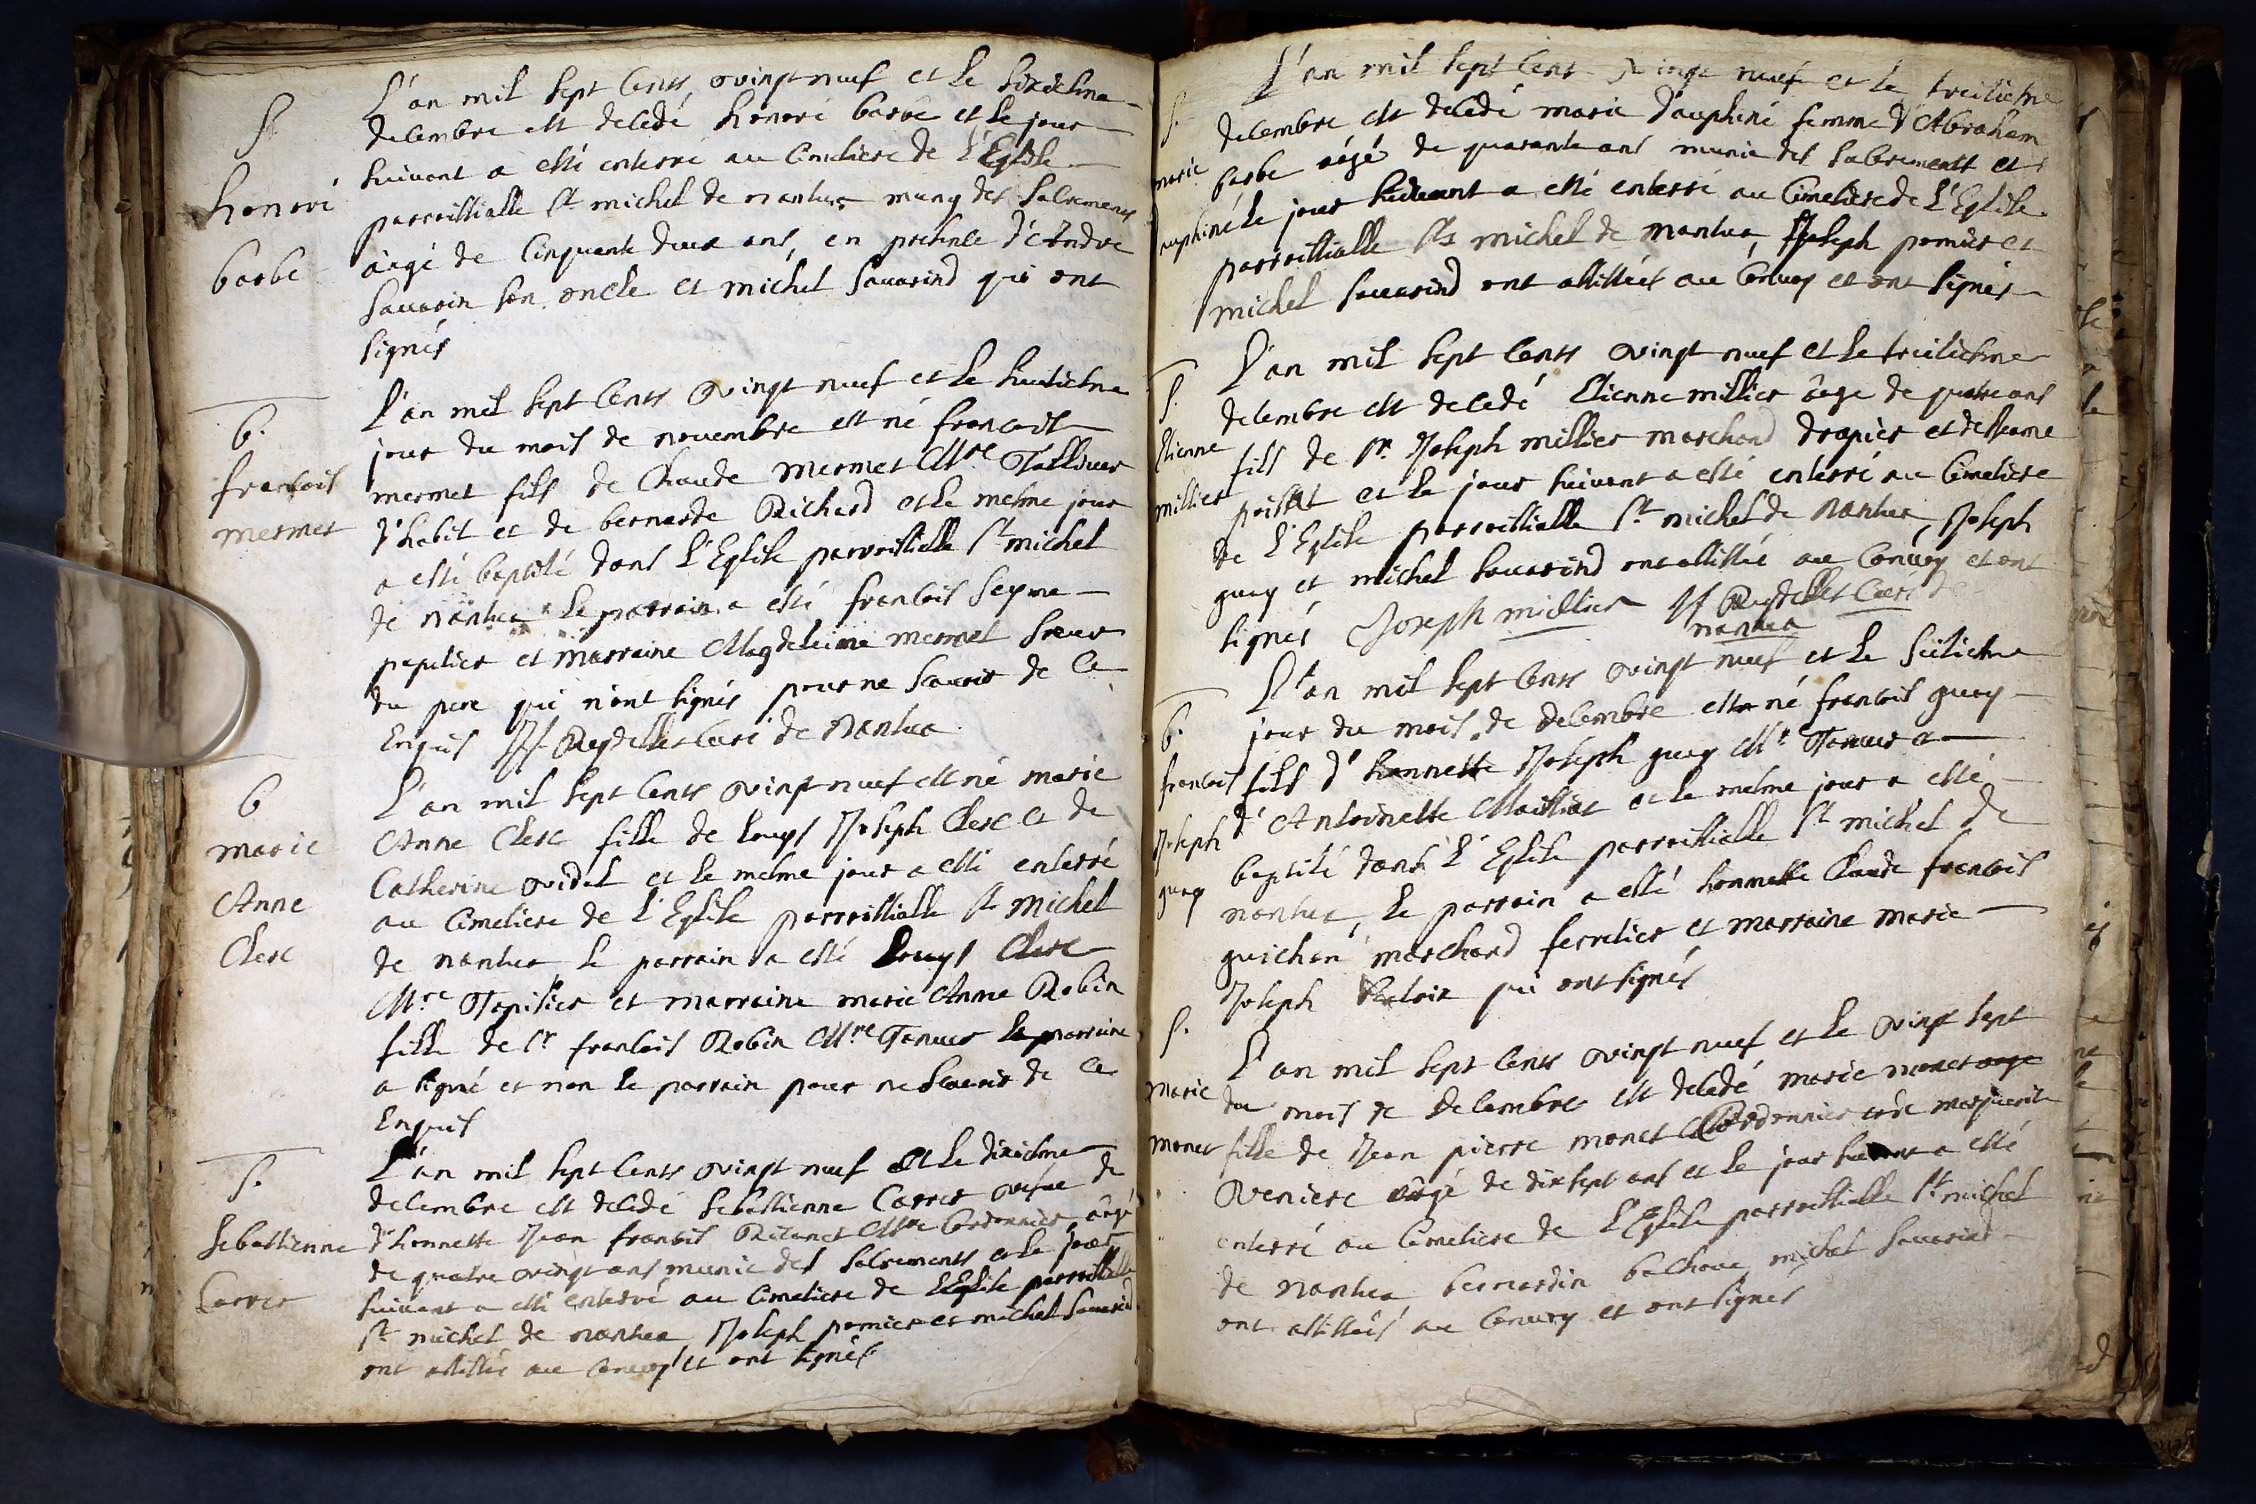 S.
honoré
barbe
L'an mil sept cents vingt neuf et le sixiesme
decembre est decedé honoré barbe et le jour
suivant a esté enterré au cimetiere de L'Eglise
parroissialle St michel de nantua muny des sacrements
âagé de cinquante deux ans, en presence d'Andre
Savarin son oncle et michel Savarind qui ont
signés
b.
francois
mermet
L'an mil sept cents vingt neuf et le huitiesme
jour du mois de novembre est né francois
mermet fils de Claude mermet Mre Tallieur
d'habit et de bernarde Richard et le mesme jour
a esté baptisé dans L'Eglise parroissialle St michel
de nantua le parrain a esté francois Seyme
papetier et marraine Magdeleine mermet soeur
du pere qui n'ont signés pour ne scavoir de ce
Enquis Reydellet Curé de nantua
b
marie
Anne
Clerc
L'an mil sept cents vingt neuf est né marie
Anne Clerc fille de Louys Joseph Clerc et de
Catherine vidal et le mesme jour a esté enterré
au cimetiere de L'Eglise parroissialle St michel
de nantua le parrain a esté Louys Clerc
Mre Tapissier et marraine marie Anne Robin
fille de Sr francois Robin Mre Tanneur la marraine
a signé et non le parrain pour ne scavoir de ce
Enquis
S.
Sebastienne
Carrer
L'an mil sept cents vingt neuf et le dixiesme
decembre est decedé Sebastienne Carrer vefue de
d'honneste Jean francois Mre Cordonnier âagé
de quatre vingt ans munie des sacrements et le jour
suivant a esté enterré au cimetiere de L'Eglise parroissialle
St michel de nantua Joseph pomier et michel Savarind
ont assistés au convoy et ont signés
S.
marie
dauphiné
L'an mil sept cens vingt neuf et le treiziesme
decembre est decedé marie Dauphiné femme d'Abraham
barbe âagé de quarante ans munie des sacrements et
le jour suivant a esté enterré au cimetiere de L'Eglise
parroissialle St michel de nantua, Joseph pomier et
michel Savarind ont assistées au convoy et ont signés
S.
Etienne
millier
L'an mil sept cents vingt neuf et le treiziesme
decembre est decedé Etienne millier âage de quatre ans
fils de Sr Joseph millier marchand drapier et de Jeanne
et le jour suivant a esté enterré au cimetiere
de L'Eglise parroissialle St michel de nantua, Joseph
guey et michel Savarind ont assistés au convoy et ont
signés Joseph millier Reydellet Curé de
nantua
b.
francois
Joseph
guey
L'an mil sept cents vingt neuf et le seiziesme
jour du mois de decembre est né francois guey
fils d'honneste Joseph guey Mre Tanneur
d'Antoinette Mailliat et le mesme jour a esté
baptisé dans L'Eglise parroissialle St michel de
nantua, le parrain a esté honneste Claude francois
guichon marchand ferratier et marraine marie
Joseph qui ont signés
S.
marie
monet
L'an mil sept cents vingt neuf et le vingt sept
du mois de decembre est decedé marie monet aage
fille de Jean pierre monet Cordonnier et de marguerite
veniere âagé de dix sept ans et le jour suivant a esté
enterré au cimetiere de L'Eglise parroissialle St michel
de nantua bernardin michel Savarind
ont assistés au convoy et ont signés